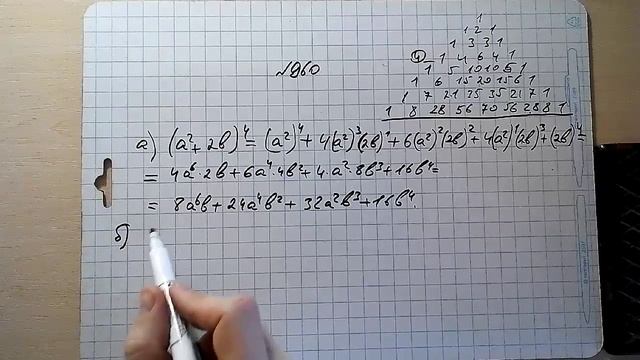 №960
1
1 2 1
1 3 3 1
④ 1 4 6 4 1
1 5 10 10 5 1
1 6 15 20 15 6 1
1 7 21 35 35 21 7 1
1 8 28 56 70 56 28 8 1
а) (a²+2b)⁴=(a²)⁴+4(a²)³(2b)¹+6(a²)²(2b)²+4(a²)¹(2b)³+(2b)⁴=
= 4a⁶·2b+6a⁴·4b²+4·a²·8b³+16b⁴=
= 8a⁶b+24a⁴b²+32a²b³+16b⁴.
б)